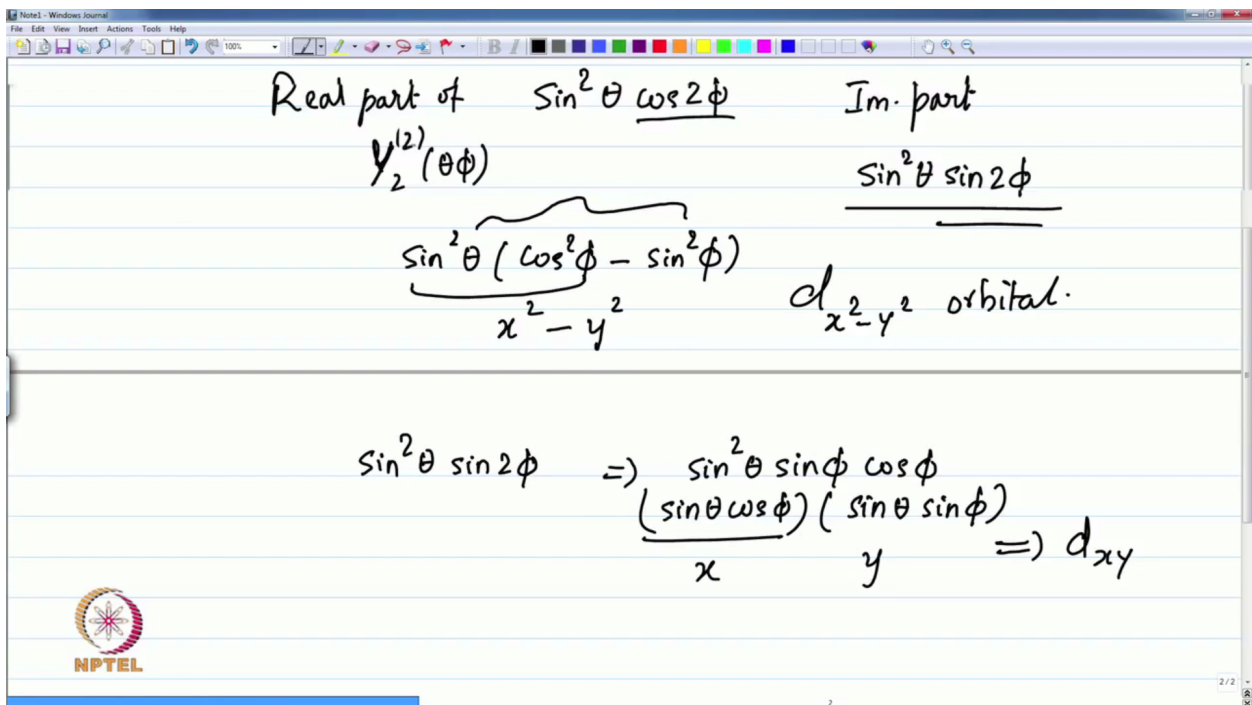 Note1 - Windows Journal
File Edit View Insert Actions Tools Help
100%
B I
Real part of sin² θ cos 2ϕ Im. part
Y₂⁽²⁾(θϕ)
sin²θ sin 2ϕ
sin²θ ( cos²ϕ – sin²ϕ)
x² – y²
d_{x²–y²} orbital.
sin²θ sin 2ϕ =) sin²θ sinϕ cosϕ
(sinθ cosϕ) ( sinθ sinϕ)
x y =) d_{xy}
NPTEL
2 / 2
2